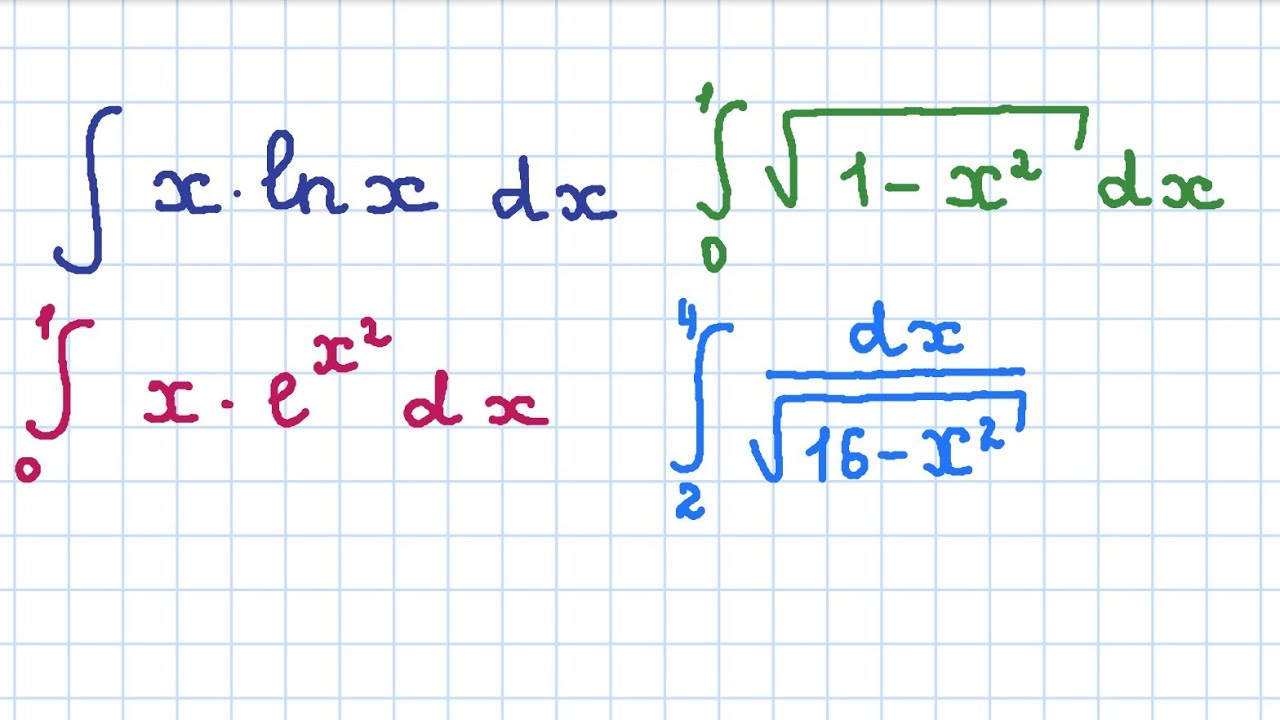 ∫ x · ln x dx
∫₀¹ √(1 - x²) dx
∫₀¹ x · e^(x²) dx
∫₂⁴ dx / √(16 - x²)